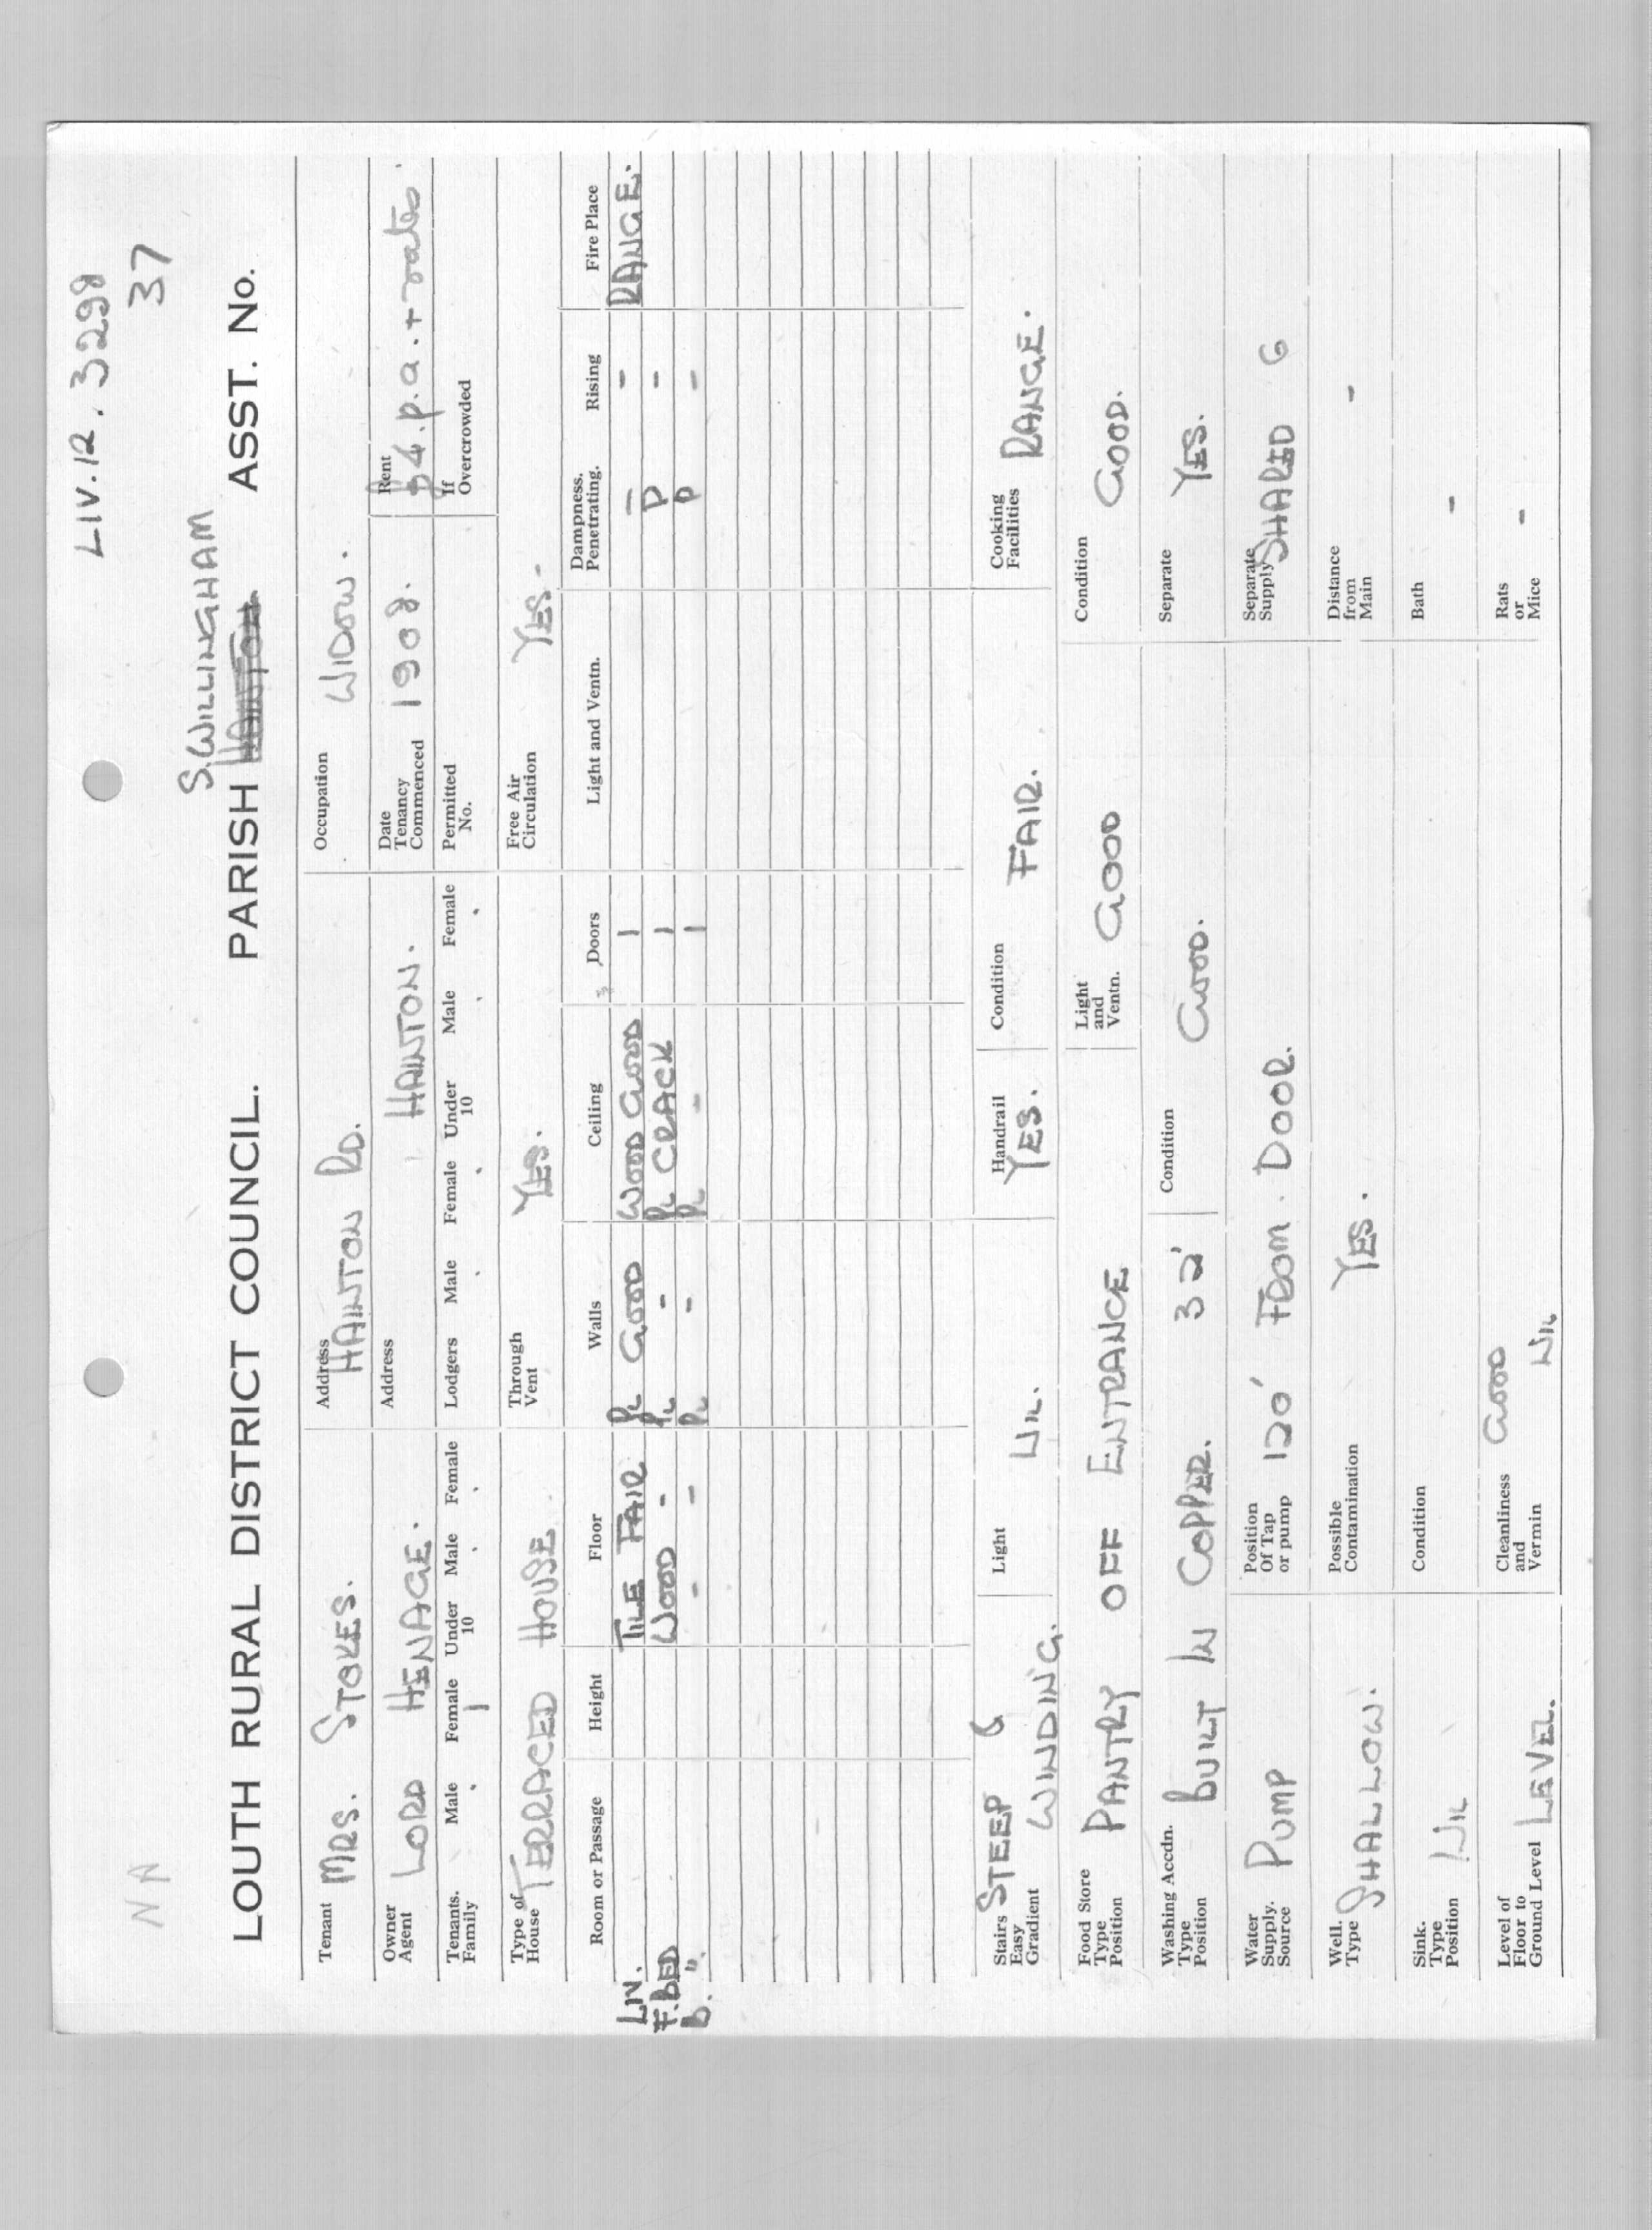 NA
LIV.12.3298
37
S. WILLINGHAM
LOUTH RURAL DISTRICT COUNCIL. PARISH HAINTON ASST. No.
Tenant MRS. STOKES. Address HAINTON RD. Occupation WIDOW.
Owner Agent LORD HENAGE. Address HAINTON. Date Tenancy Commenced 1908. Rent £4.p.a. + rates.
Tenants. Family Male Female 1 Under 10 Male Female Lodgers Male Female Under 10 Male Female Permitted No. If Overcrowded
Type of House TERRACED HOUSE Through Vent YES. Free Air Circulation YES.
Room or Passage Height Floor Walls Ceiling Doors Light and Ventn. Dampness. Penetrating. Rising Fire Place
LIV. TILE FAIR PL GOOD WOOD GOOD 1 - - RANGE.
F.BED WOOD - PL - PL CRACK 1 P -
B. " - - PL - PL - 1 P -
Stairs Easy Gradient STEEP & WINDING. Light NIL. Handrail YES. Condition FAIR. Cooking Facilities RANGE.
Food Store Type Position PANTRY OFF ENTRANCE Light and Ventn. GOOD Condition GOOD.
Washing Accdn. Type Position BUILT IN COPPER. 32' Condition GOOD. Separate YES.
Water Supply. Source PUMP Position Of Tap or pump 120' FROM DOOR. Separate Supply SHARED 6
Well. Type SHALLOW. Possible Contamination YES. Distance from Main -
Sink. Type Position NIL Condition Bath -
Level of Floor to Ground Level LEVEL. Cleanliness and Vermin GOOD NIL Rats or Mice -